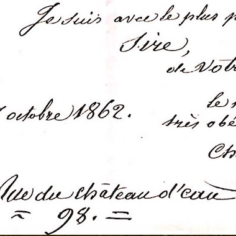 Je suis avec le plus p
Sire,
de Votr
octobre 1862.
le
très obé
Ch
Rue du château d'eau
= 98. =